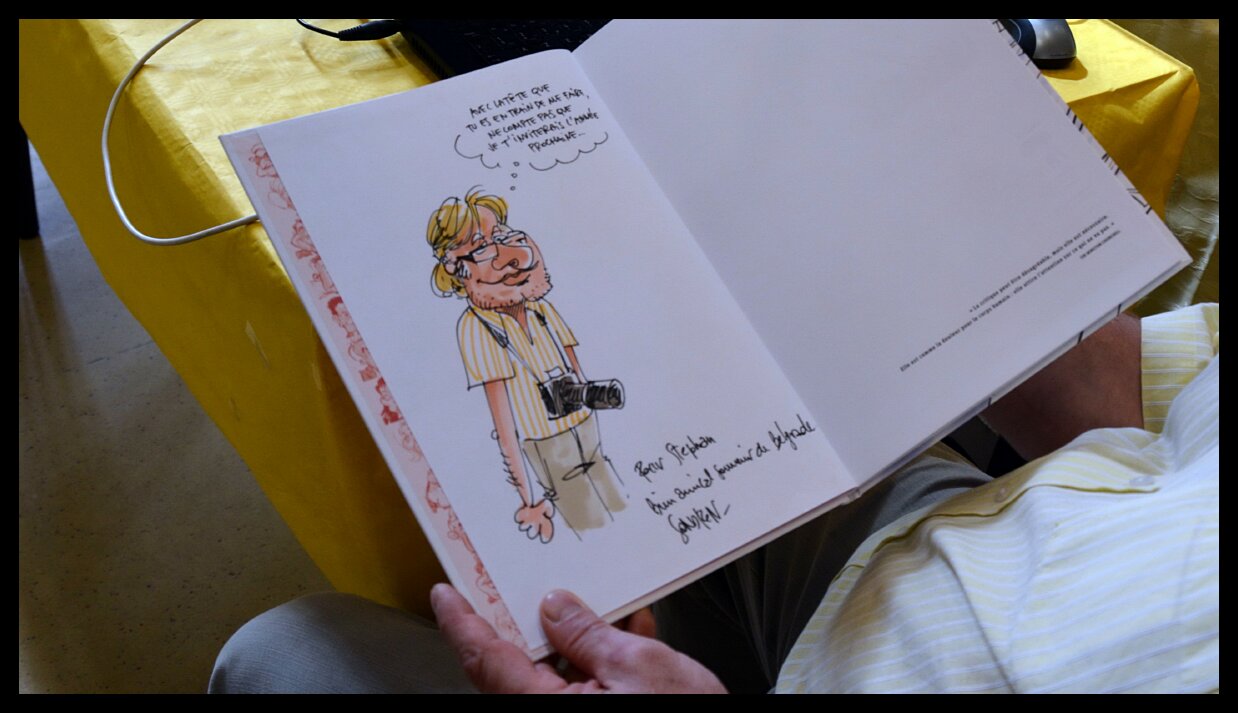 AVEC LA TÊTE QUE
TU ES EN TRAIN DE ME FAIRE,
NE COMPTE PAS QUE
JE T'INVITERAIS L'ANNÉE
PROCHAINE...
Pour Stephan
Bien amical souvenir de Belgrade
« La critique peut être désagréable, mais elle est nécessaire.
Elle est comme la douleur pour le corps humain : elle attire l'attention sur ce qui ne va pas. »